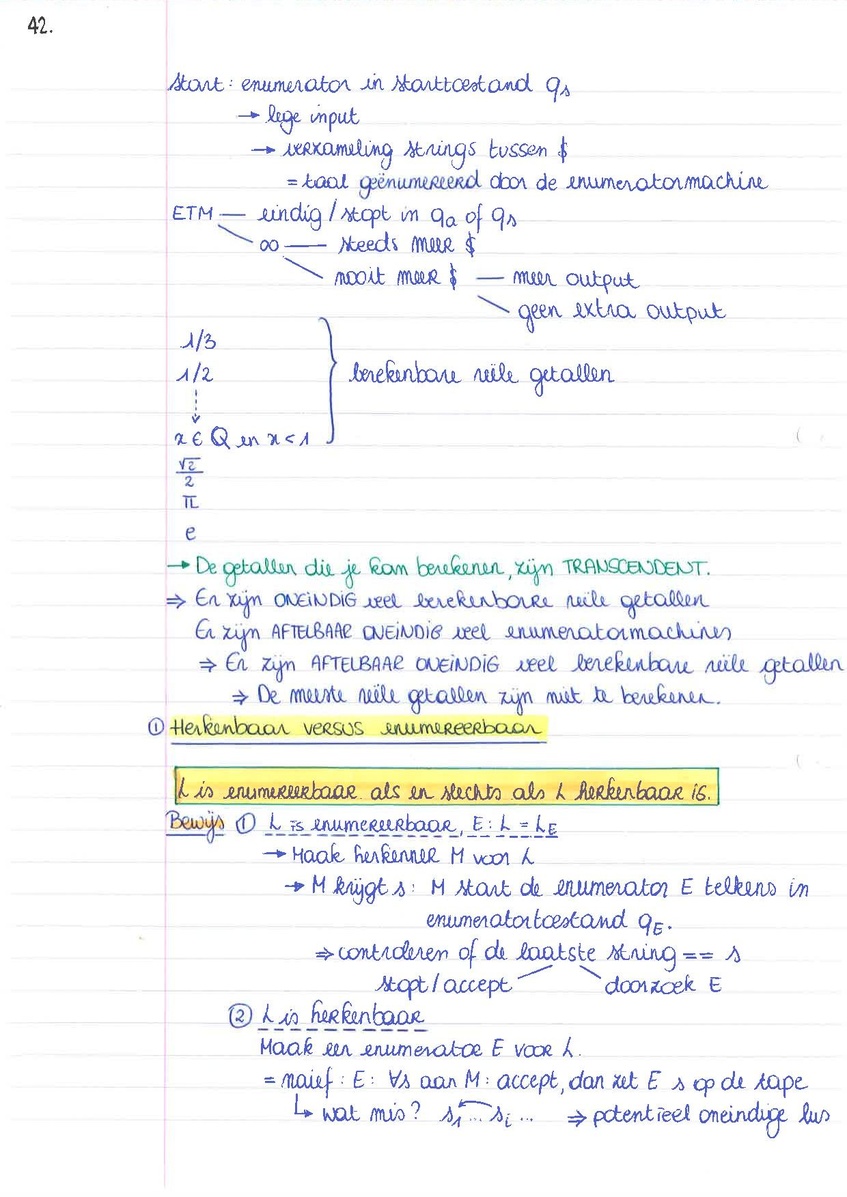 42.
Start: enumerator in starttoestand qs
→ lege input
→ verzameling strings tussen $
= taal geënumereerd door de enumeratormachine
ETM — eindig / stopt in qa of qs
∞ — steeds meer $
nooit meer $ — meer output
geen extra output
1/3
1/2
berekenbare reële getallen
x ∈ Q en x < 1
√2/2
π
e
→ De getallen die je kan berekenen, zijn TRANSCENDENT.
⇒ Er zijn ONEINDIG veel berekenbare reële getallen
Er zijn AFTELBAAR ONEINDIG veel enumeratormachines
⇒ Er zijn AFTELBAAR ONEINDIG veel berekenbare reële getallen
⇒ De meeste reële getallen zijn niet te berekenen.
① Herkenbaar VERSUS enumereerbaar
L is enumereerbaar als en slechts als L herkenbaar is.
Bewijs ① L is enumereerbaar, E: L = LE
→ Maak herkenner M voor L
→ M krijgt s: M start de enumerator E telkens in
enumeratortoestand qE.
⇒ controleren of de laatste string == s
stopt / accept doorzoek E
② L is herkenbaar
Maak een enumerator E voor L.
= naief: E: ∀s aan M: accept, dan zet E s op de tape
↳ wat mis? s1 ... si ... ⇒ potentieel oneindige lus